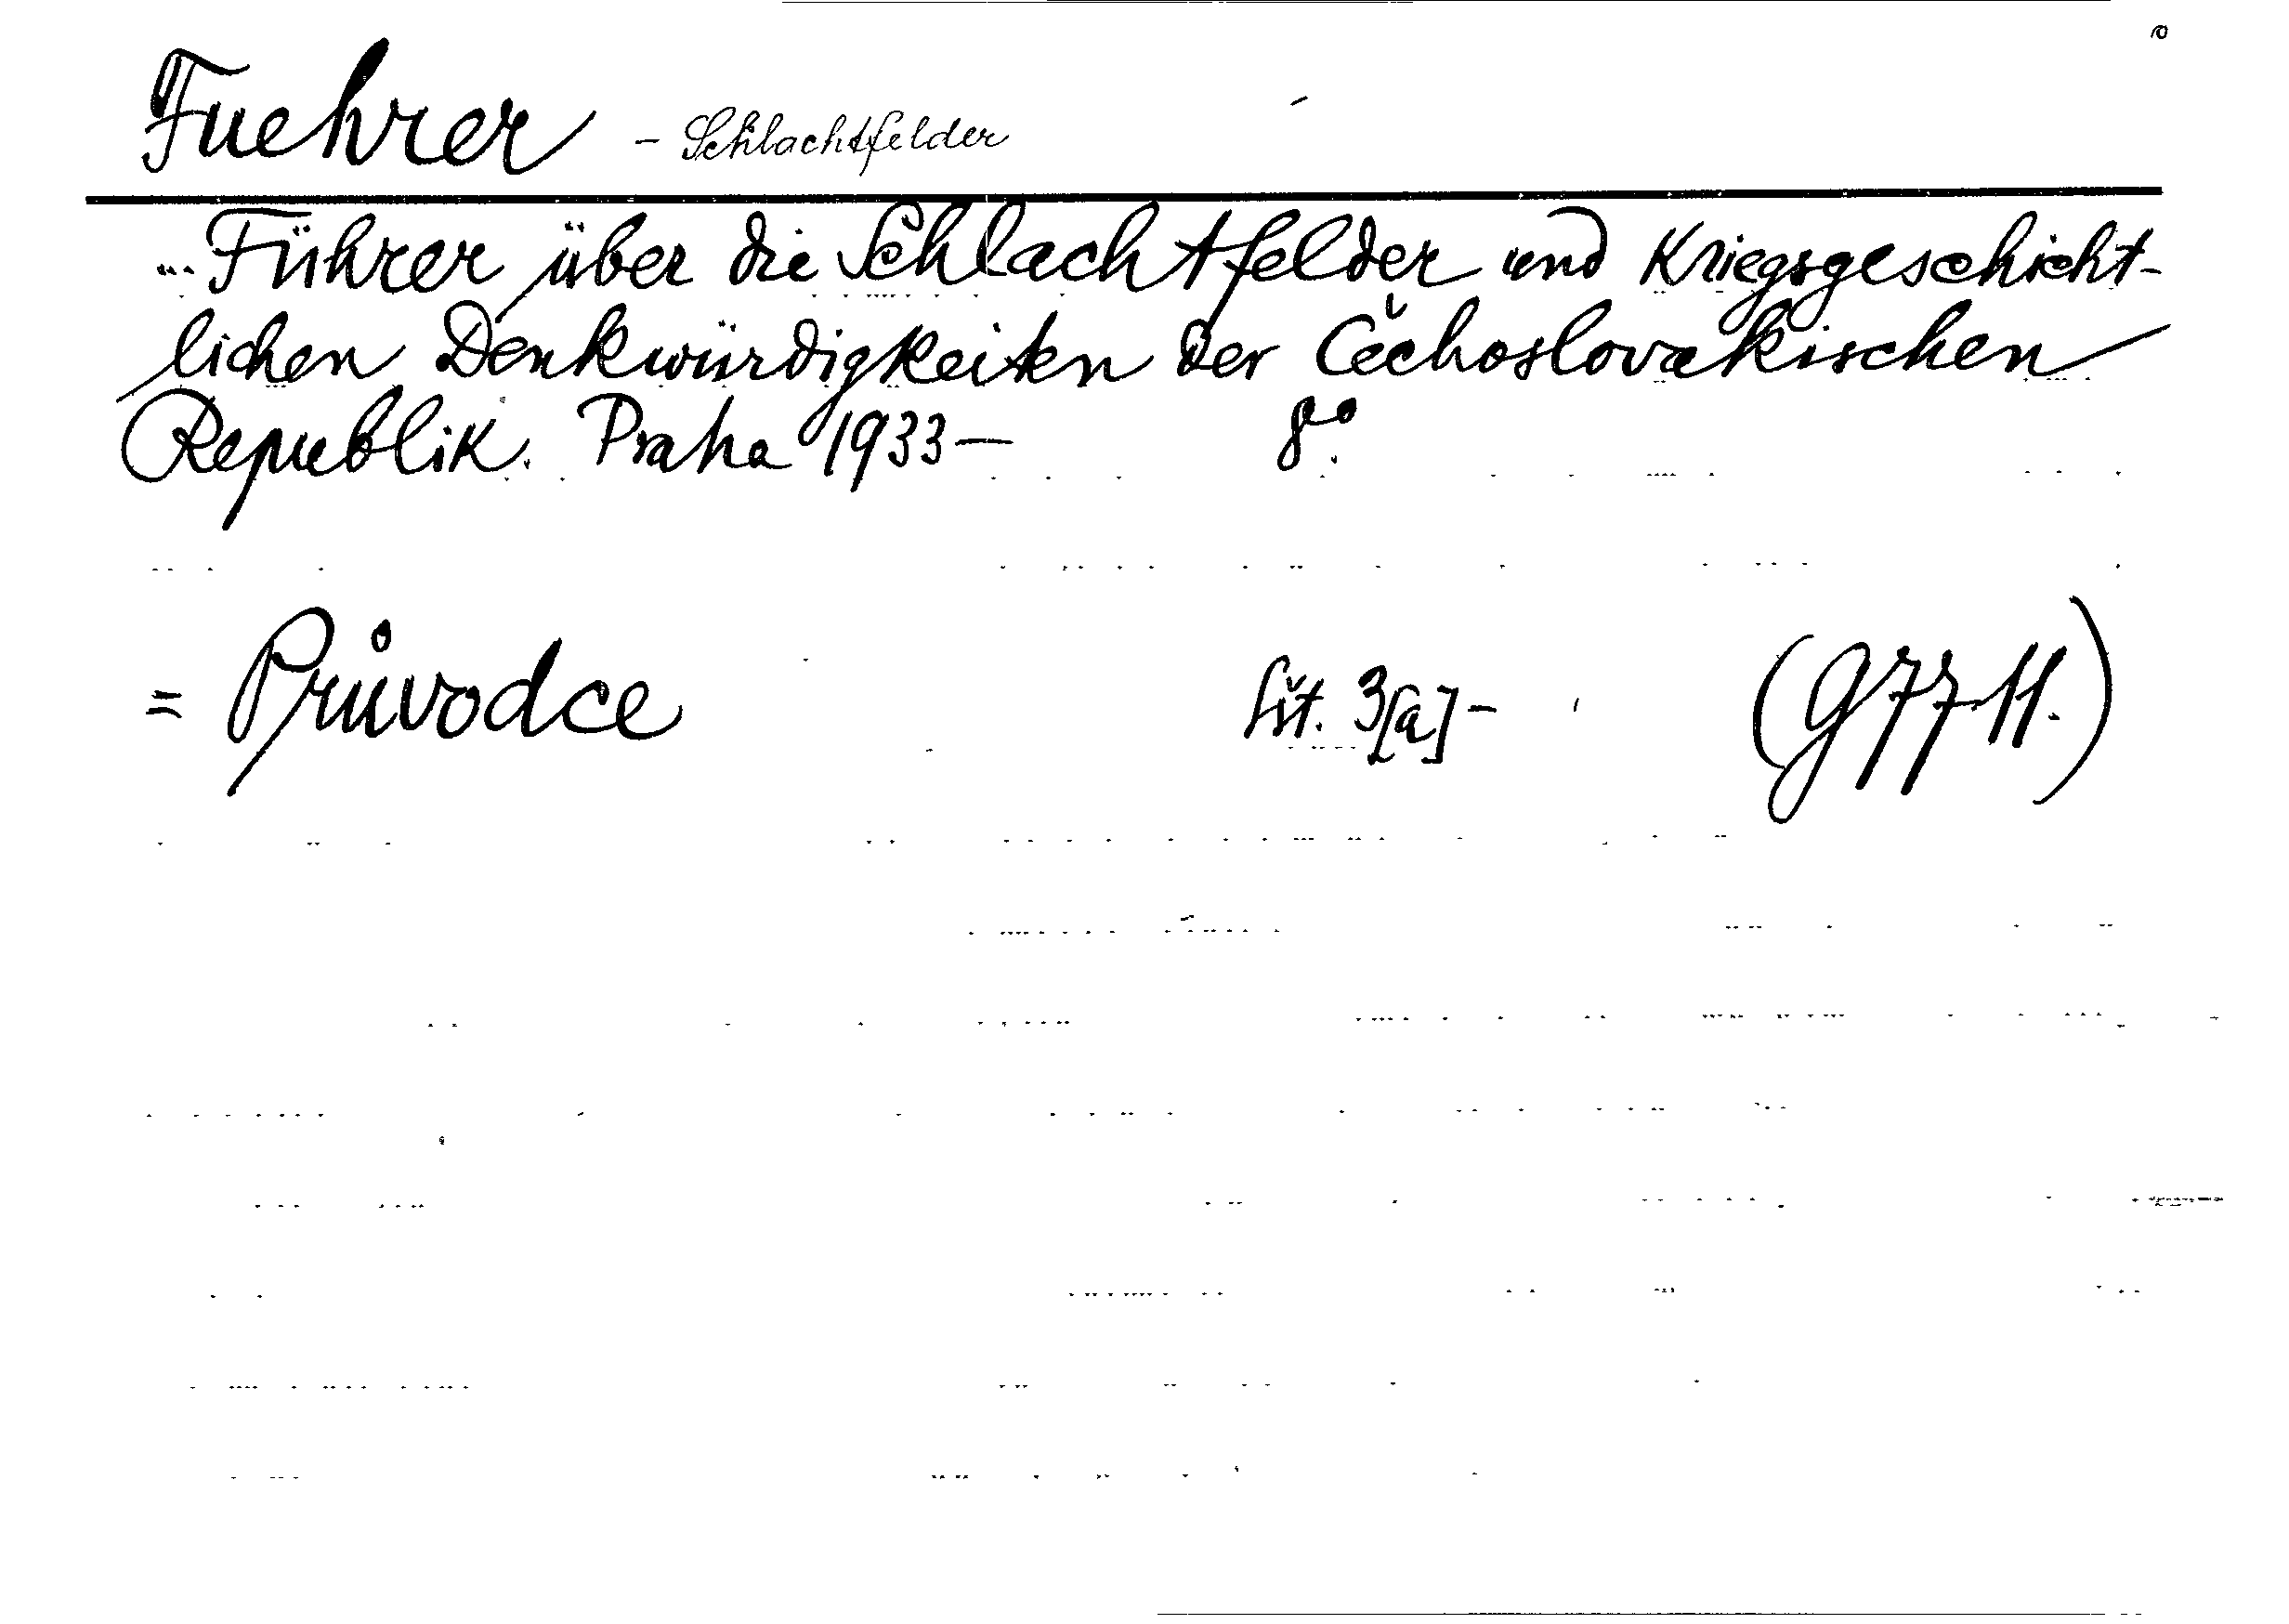 Fuehrer - Schlachtfelder
... Führer über die Schlachtfelder und Kriegsgeschicht-
lichen Denkwürdigkeiten der Čechoslovakischen
Republik. Praha 1933— 8°.
= Průvodce 3[a]-